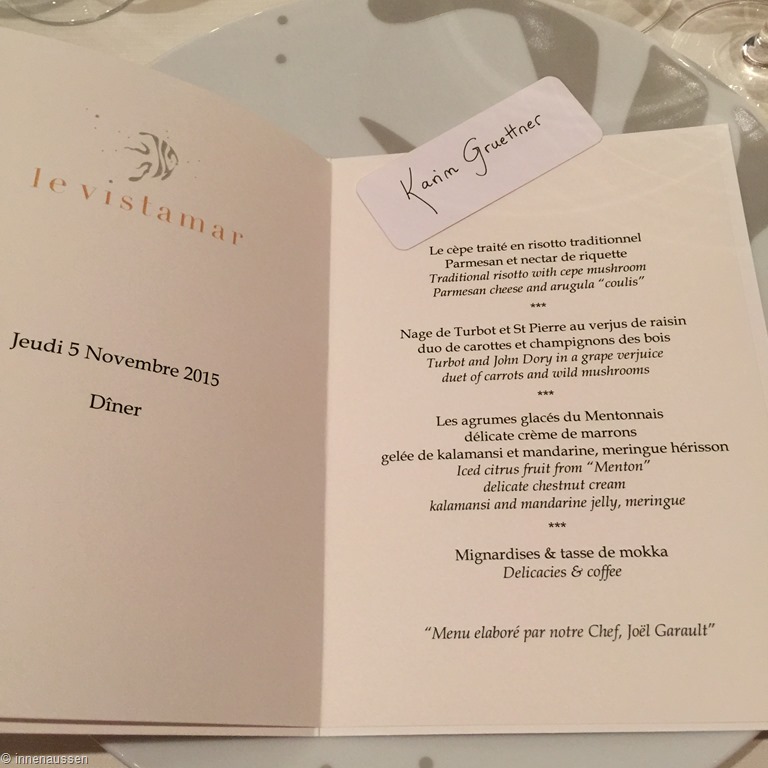 le vistamar
Jeudi 5 Novembre 2015
Dîner
Karim Gruettner
Le cèpe traité en risotto traditionnel
Parmesan et nectar de riquette
Traditional risotto with cepe mushroom
Parmesan cheese and arugula “coulis”
***
Nage de Turbot et St Pierre au verjus de raisin
duo de carottes et champignons des bois
Turbot and John Dory in a grape verjuice
duet of carrots and wild mushrooms
***
Les agrumes glacés du Mentonnais
délicate crème de marrons
gelée de kalamansi et mandarine, meringue hérisson
Iced citrus fruit from “Menton”
delicate chestnut cream
kalamansi and mandarine jelly, meringue
***
Mignardises & tasse de mokka
Delicacies & coffee
“Menu elaboré par notre Chef, Joël Garault”
© innenaussen